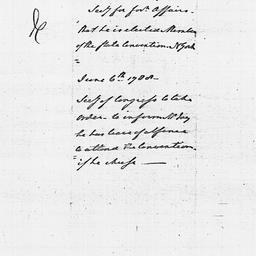 Secy for forn Affairs.
that he is elected Member
of the State Convention N York
June 6th 1788
Secy of Congress to take
order to inform Mr Jay
he has leave of absence
to attend the Convention
if he chuse —